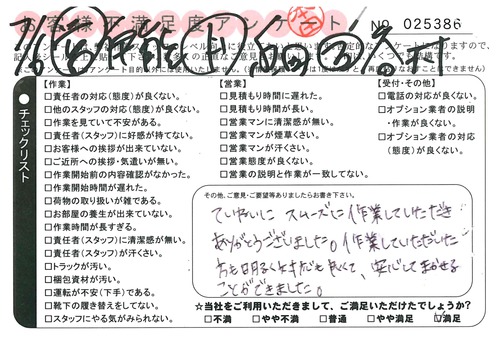 お客様不満足度アンケート
No 025386
チェックリスト
【作業】
□責任者の対応(態度)が良くない。
□他のスタッフの対応(態度)が良くない。
□作業を見ていて不安がある。
□責任者(スタッフ)に好感が持てない。
□お客様への挨拶が出来ていない。
□ご近所への挨拶・気遣いが無い。
□作業開始前の内容確認がなかった。
□作業開始時間が遅れた。
□荷物の取り扱いが雑である。
□お部屋の養生が出来ていない。
□作業時間が長すぎる。
□責任者(スタッフ)に清潔感が無い。
□責任者(スタッフ)が汗くさい。
□トラックが汚い。
□梱包資材が汚い。
□運転が不安(下手)である。
□靴下の履き替えをしてない。
□スタッフにやる気がみられない。
【営業】
□見積もり時間に遅れた。
□見積もり時間が長い。
□営業マンに清潔感が無い。
□営業マンが煙草くさい。
□営業マンが汗くさい。
□営業態度が良くない。
□営業の説明と作業が一致してない。
【受付・その他】
□電話の対応が良くない。
□オプション業者の説明
・作業が良くない。
□オプション業者の対応
(態度)が良くない。
その他、ご意見・ご要望等ありましたらお書き下さい。
ていねいに スムーズに作業していただき
ありがとうございました。作業していただいた
方も明るくとても良くて、安心してまかせる
ことができました。
★当社をご利用いただきまして、ご満足いただけたでしょうか?
□不満 □やや不満 □普通 □やや満足 ☑満足